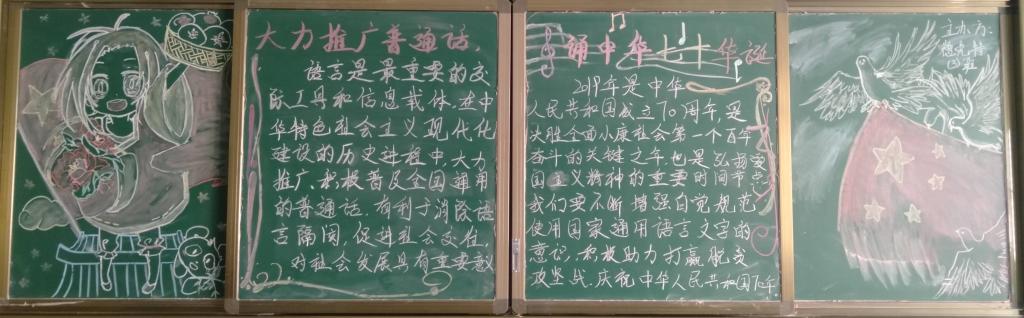 大力推广普通话,
语言是最重要的交
际工具和信息载体.在中
华特色社会主义现代化
建设的历史进程中大力
推广、积极普及全国通用
的普通话.有利于消除语
言隔阂,促进社会交往,
对社会发展具有重要意
诵中华七十华诞
2019年是中华
人民共和国成立70周年,是
决胜全面小康社会第一个百年
奋斗的关键之年.也是弘扬爱
国主义精神的重要时间节点
我们要不断增强自觉规范
使用国家通用语言文字的
意识,积极助力打赢脱贫
攻坚战.庆祝中华人民共和国70年
主办方: